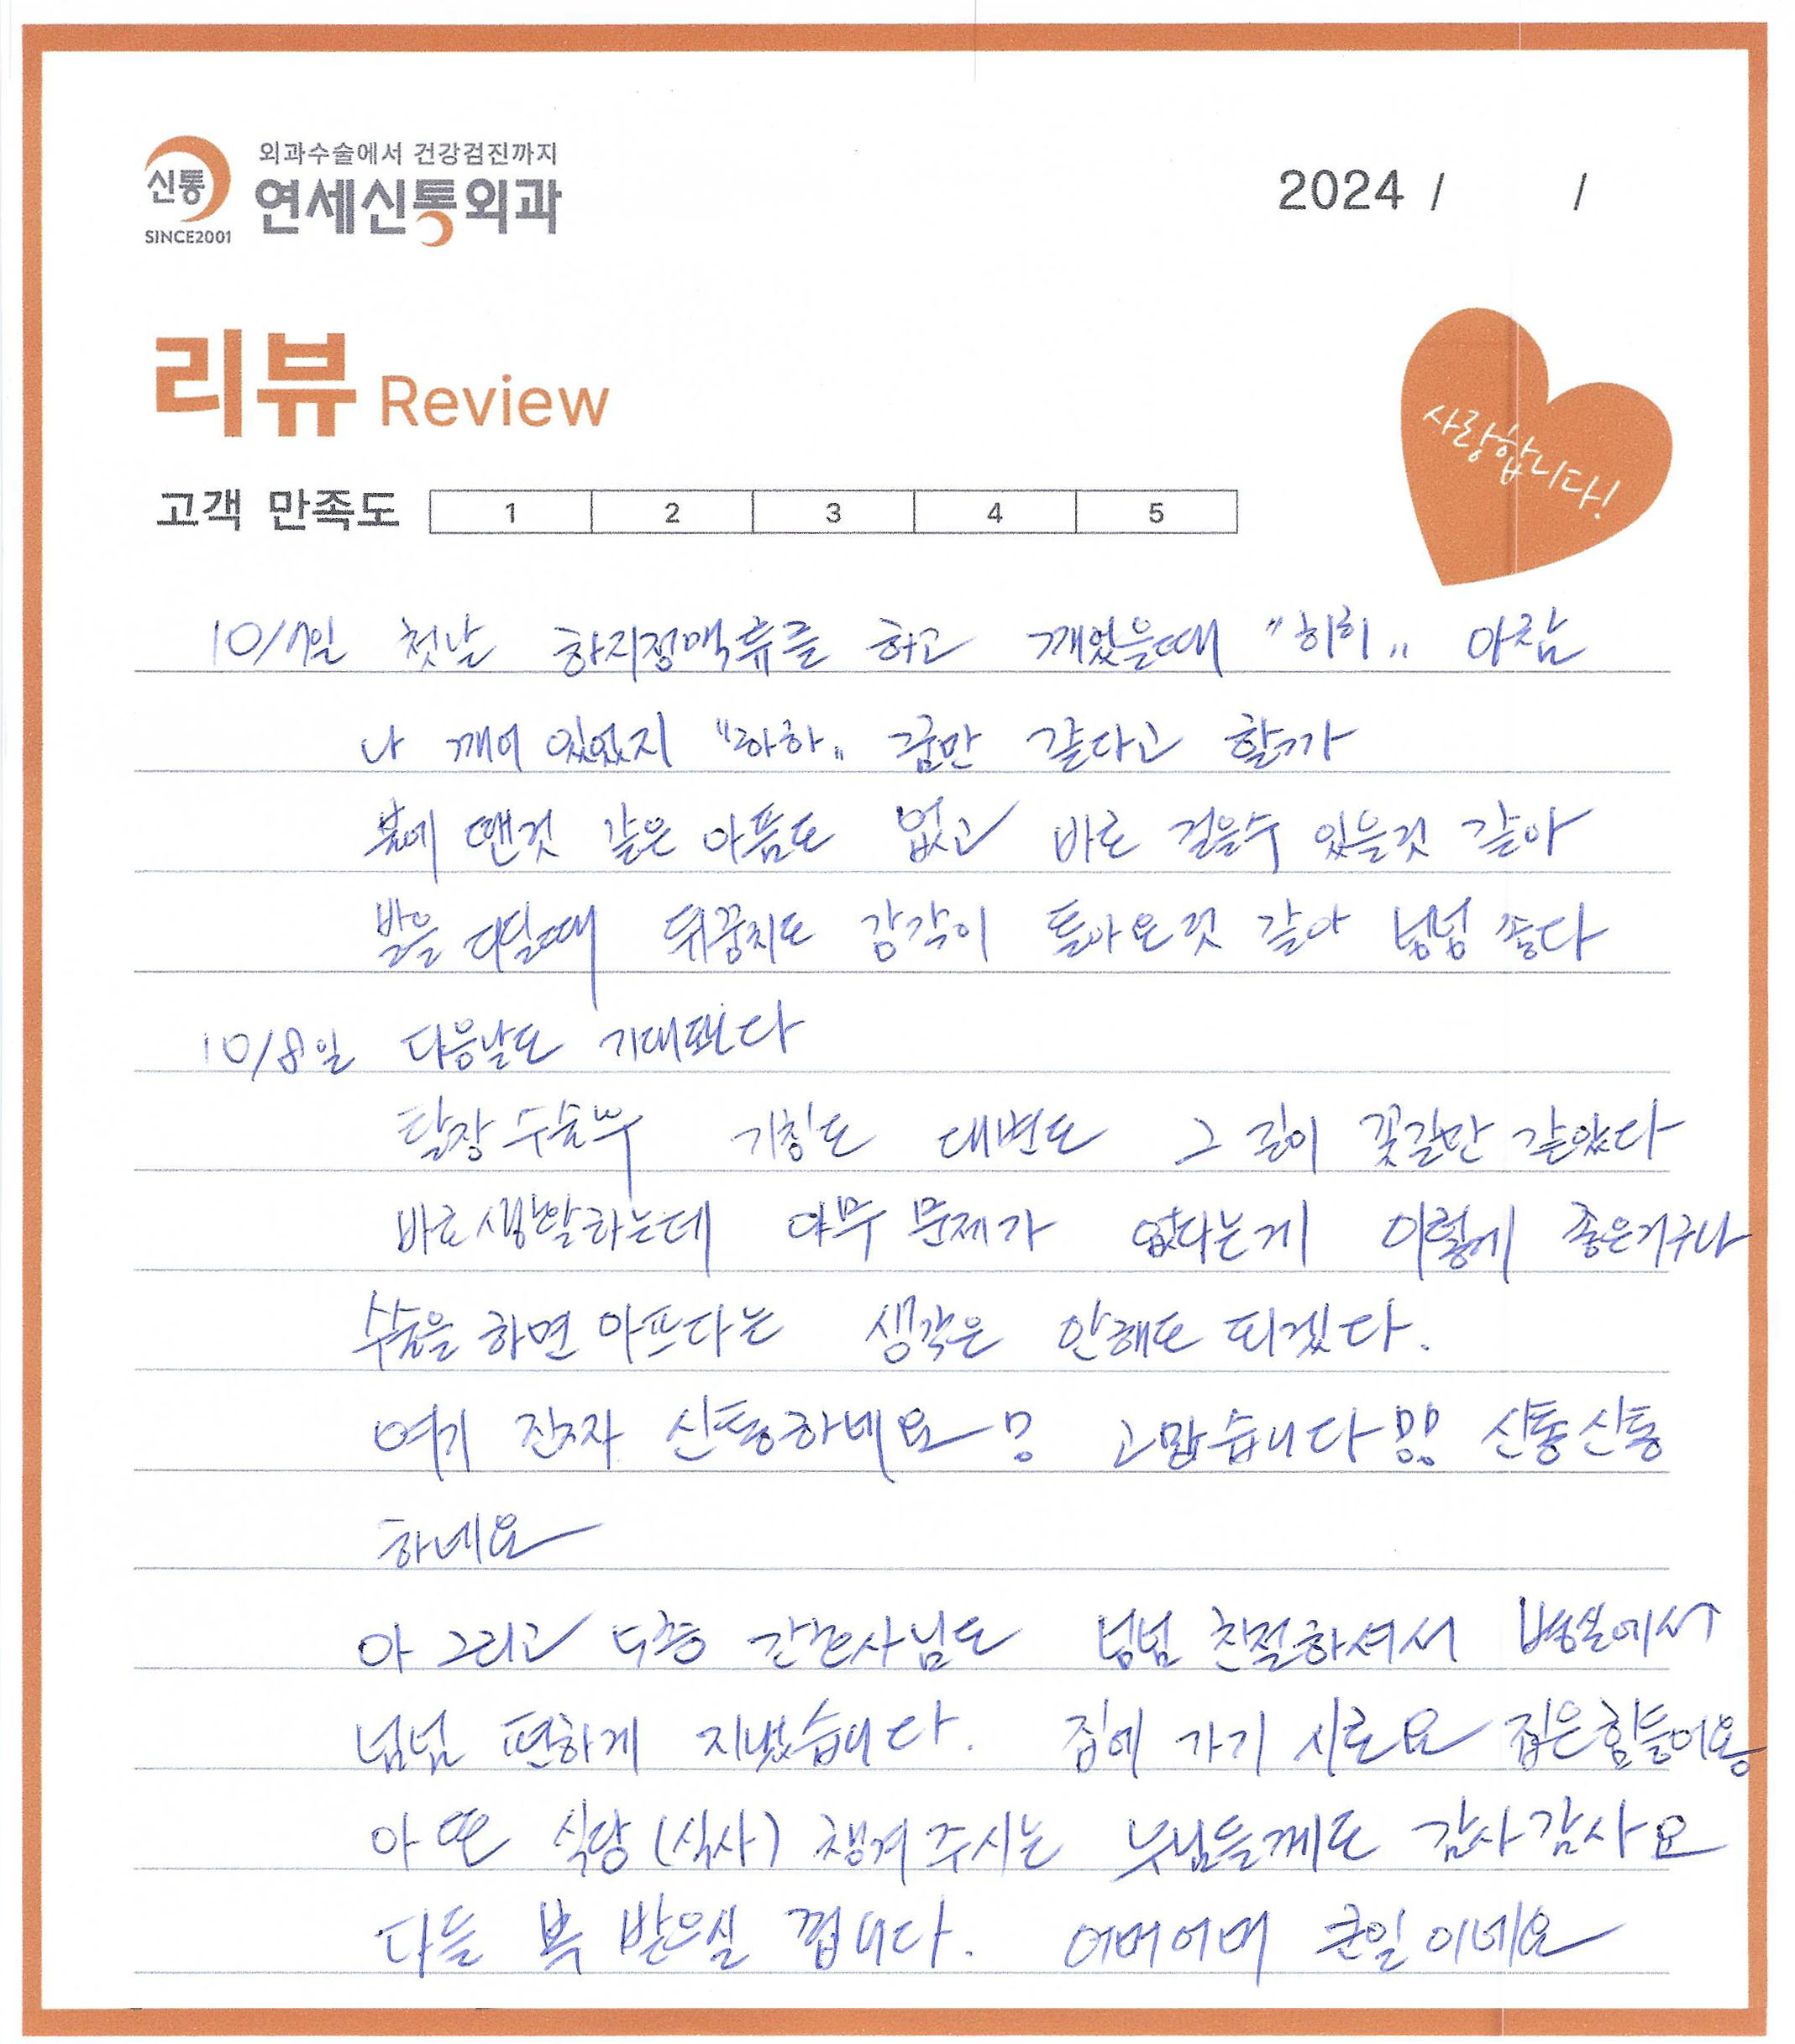 외과수술에서 건강검진까지
신통
연세신통외과
SINCE2001
2024 / /
리뷰 Review
사랑합니다!
고객 만족도 1 2 3 4 5
10/7일 첫날 하지정맥류를 하고 깨었을때 "히히" 아참
나 깨어 있었지 "하하" 꿈만 같다고 할까
붐에 땐것 같은 아픔도 없고 바로 걸을수 있을것 같아
발을 디딜때 뒤꿈치도 감각이 돌아온것 같아 넘넘 좋다
10/8일 다음날도 기대됀다
탈장 수술후 기침도 대변도 그 길이 꽃길만 같았다
바로생활하는데 아무 문제가 없다는게 이렇게 좋은거구나
수술을 하면 아프다는 생각은 안해도 되겠다.
여기 진짜 신통하네요! 고맙습니다!! 신통신통
하네요
아 그리고 5층 간호사님도 넘넘 친절하셔서 병실에서
넘넘 편하게 지냈습니다. 집에 가기 시로요 집은힘들어용
아 또 식당(식사) 챙겨주시는 분들께도 감사감사요
다들 복 받으실 껍니다. 어머어머 큰일이네요